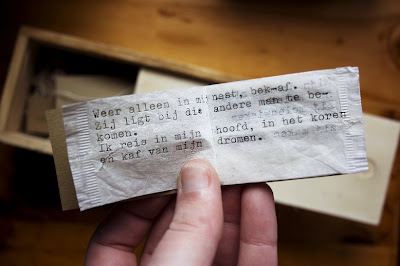 Weer alleen in mijn nest, bek-af.
Zij ligt bij die andere man te be-
komen.
Ik reis in mijn hoofd, in het koren
en kaf van mijn dromen.